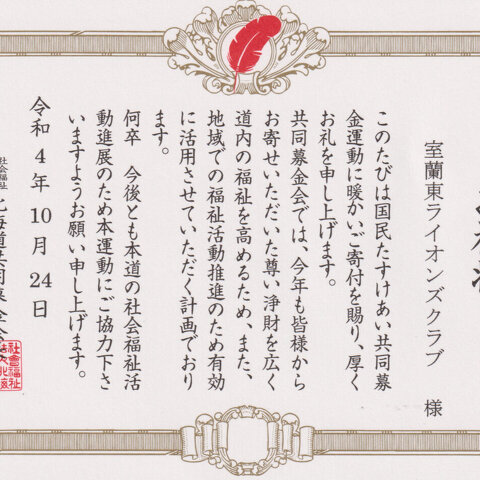 室蘭東ライオンズクラブ 様
このたびは国民たすけあい共同募
金運動に暖かいご寄付を賜り、厚く
お礼を申し上げます。
共同募金会では、今年も皆様から
お寄せいただいた尊い浄財を広く
道内の福祉を高めるため、また、
地域での福祉活動推進のため有効
に活用させていただく計画でおり
ます。
何卒 今後とも本道の社会福祉活
動進展のため本運動にご協力下さ
いますようお願い申し上げます。
令和4年10月24日
社会福祉 北海道共同募金会
社會福祉